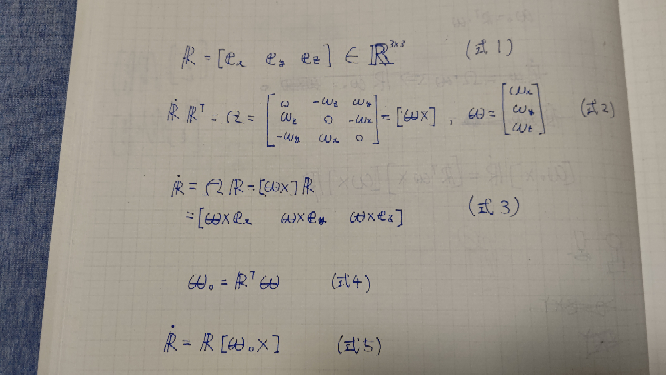 R = [e_x e_y e_z] ∈ R^{3×3} (式1)
Ṙ R^T = Ω = [ω -ω_z ω_y; ω_z 0 -ω_x; -ω_y ω_x 0] = [ω×], ω = [ω_x; ω_y; ω_z] (式2)
Ṙ = Ω R = [ω×] R
= [ω×e_x ω×e_y ω×e_z] (式3)
ω_0 = R^T ω (式4)
Ṙ = R [ω_0×] (式5)